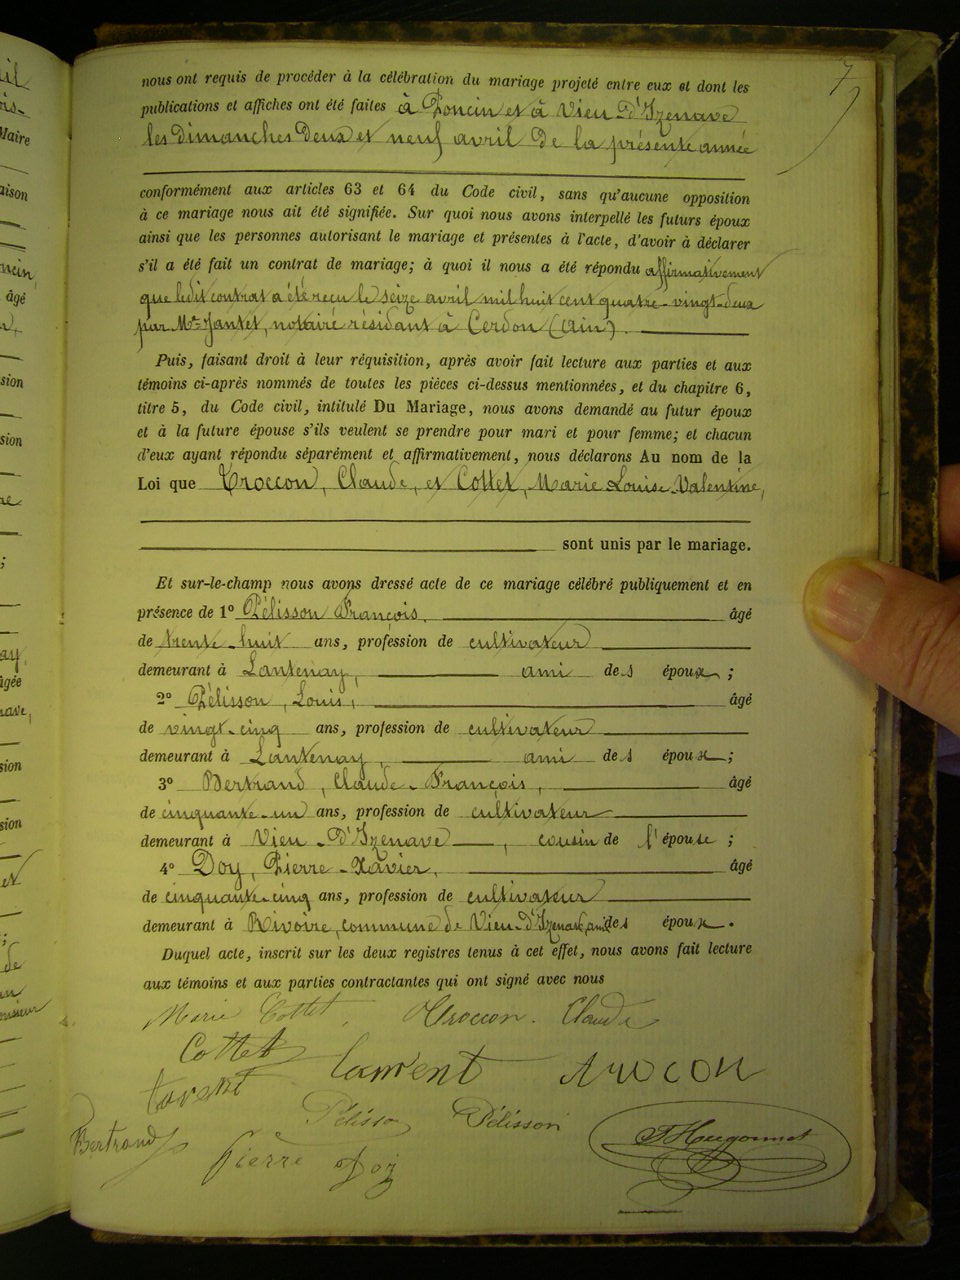 7
nous ont requis de procéder à la célébration du mariage projeté entre eux et dont les
publications et affiches ont été faites à Poncin et à Vieu-d'Izenave
les dimanches deux et neuf avril de la présente année
conformément aux articles 63 et 64 du Code civil, sans qu'aucune opposition
à ce mariage nous ait été signifiée. Sur quoi nous avons interpellé les futurs époux
ainsi que les personnes autorisant le mariage et présentes à l'acte, d'avoir à déclarer
s'il a été fait un contrat de mariage; à quoi il nous a été répondu affirmativement
que ledit contrat a été reçu le seize avril mil huit cent quatre-vingt-deux
par Me Jantet, notaire résidant à Cerdon (Ain).
Puis, faisant droit à leur réquisition, après avoir fait lecture aux parties et aux
témoins ci-après nommés de toutes les pièces ci-dessus mentionnées, et du chapitre 6,
titre 5, du Code civil, intitulé Du Mariage, nous avons demandé au futur époux
et à la future épouse s'ils veulent se prendre pour mari et pour femme; et chacun
d'eux ayant répondu séparément et affirmativement, nous déclarons Au nom de la
Loi que Troccon, Claude, et Cottet, Marie Louise Valentine,
sont unis par le mariage.
Et sur-le-champ nous avons dressé acte de ce mariage célébré publiquement et en
présence de 1º Pélisson François, âgé
de trente-huit ans, profession de cultivateur
demeurant à Lantenay, ami des époux;
2º Pélisson, Louis, âgé
de vingt-cinq ans, profession de cultivateur
demeurant à Lantenay, ami des époux;
3º Bertrand, Claude-François, âgé
de cinquante-un ans, profession de cultivateur
demeurant à Vieu-d'Izenave, cousin de l'épouse;
4º Doy, Pierre-Xavier, âgé
de cinquante-cinq ans, profession de cultivateur
demeurant à Rivoire, commune de Vieu-d'Izenave, ami des époux.
Duquel acte, inscrit sur les deux registres tenus à cet effet, nous avons fait lecture
aux témoins et aux parties contractantes qui ont signé avec nous
Marie Cottet. Troccon. Claude
Cottet
laurent trocon
Pélisson Pélisson
Bertrand pierre Doy